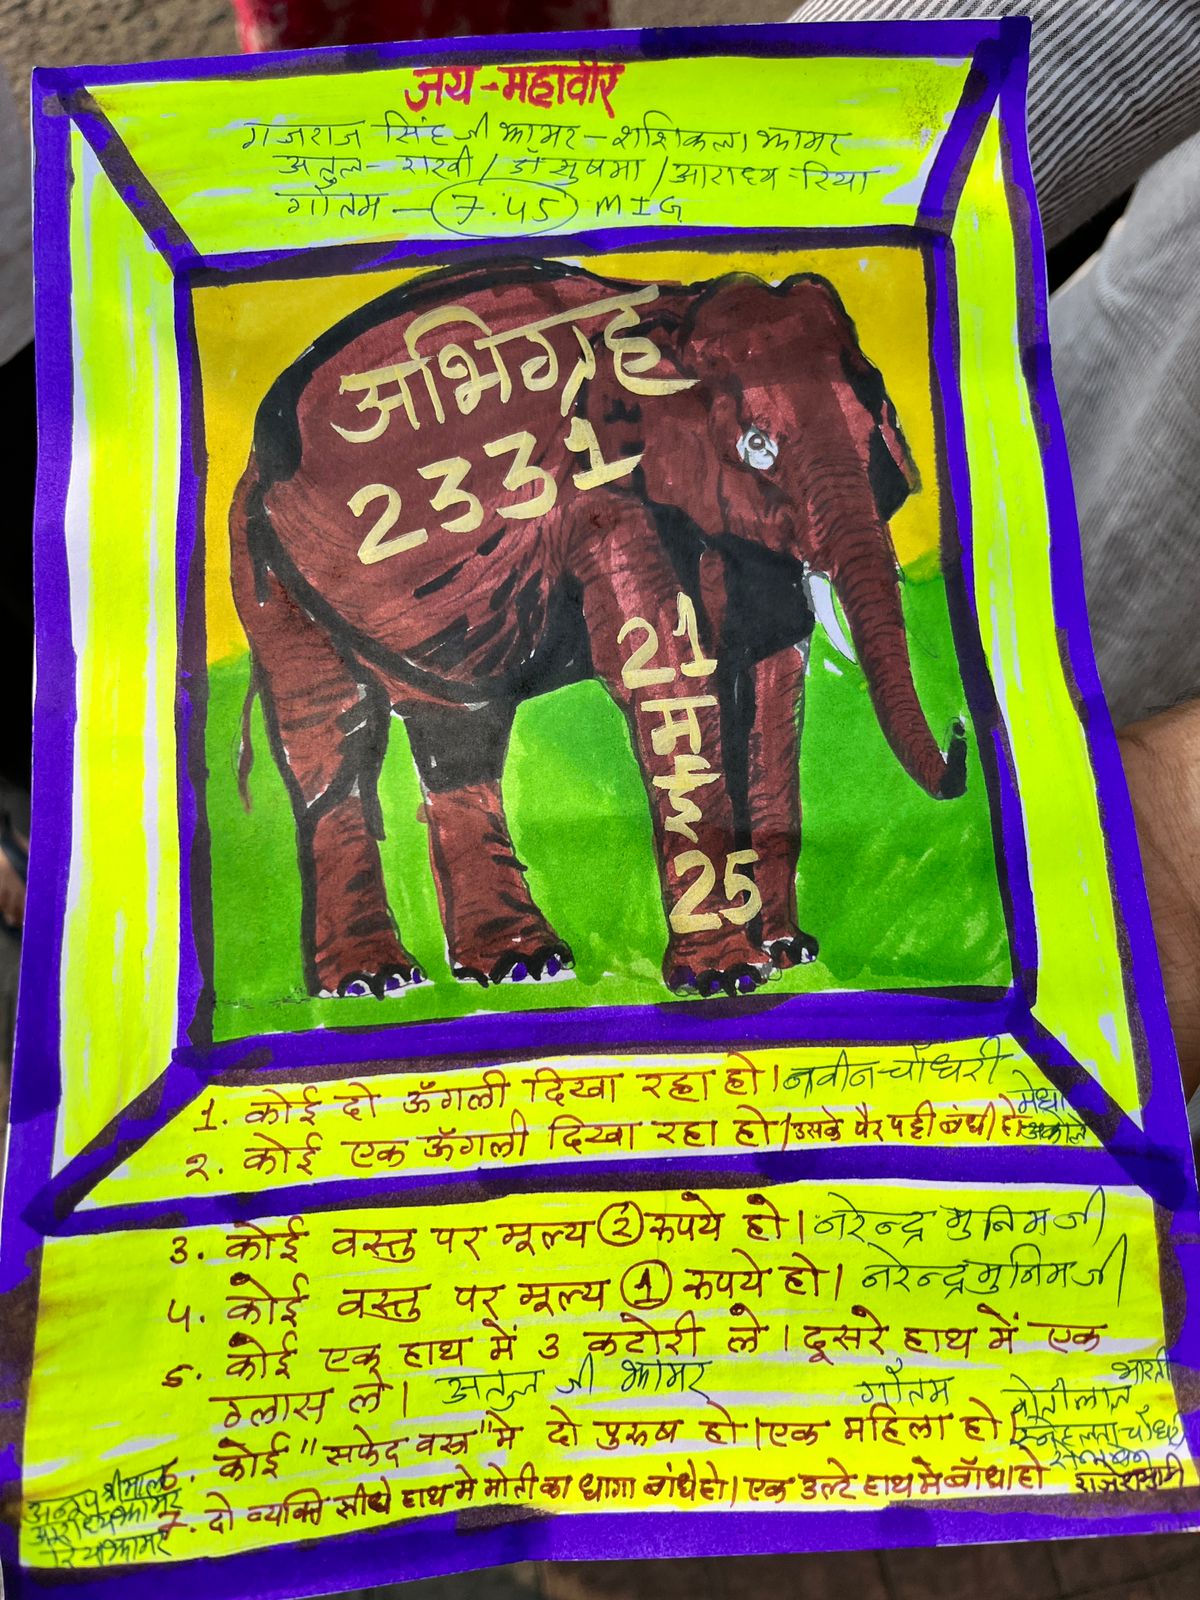 जय-महावीर
गजराज सिंह जी झामर-शशिकला झामर
अतुल-राखी/डॉ सुषमा/आराध्य-रिया
गौतम - 7.45 MIG
अभिग्रह
2331
21
मई
25
1. कोई दो ऊँगली दिखा रहा हो। नवीन चौधरी
२. कोई एक ऊँगली दिखा रहा हो/उसके पैर पट्टी बंधी हो मेधा
3. कोई वस्तु पर मूल्य 2 रुपये हो। नरेन्द्र मुनिमजी
4. कोई वस्तु पर मूल्य 1 रुपये हो। नरेन्द्र मुनिमजी
5. कोई एक हाथ में 3 कटोरी ले। दूसरे हाथ में एक
ग्लास ले। अतुल जी झामर गौतम भारती
6. कोई "सफेद वस्त्र" मे दो पुरुष हो। एक महिला हो। स्नेहलता चौधरी
7. दो व्यक्ति सीधे हाथ मे मोती का धागा बांधे हो। एक उल्टे हाथ मे बाँधा हो
अनूप श्रीमाल
आराध्य झामर
रिया झामर